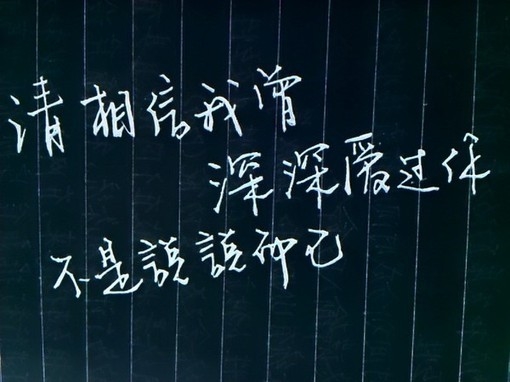 请相信我曾
深深愛过你
不是說說而已